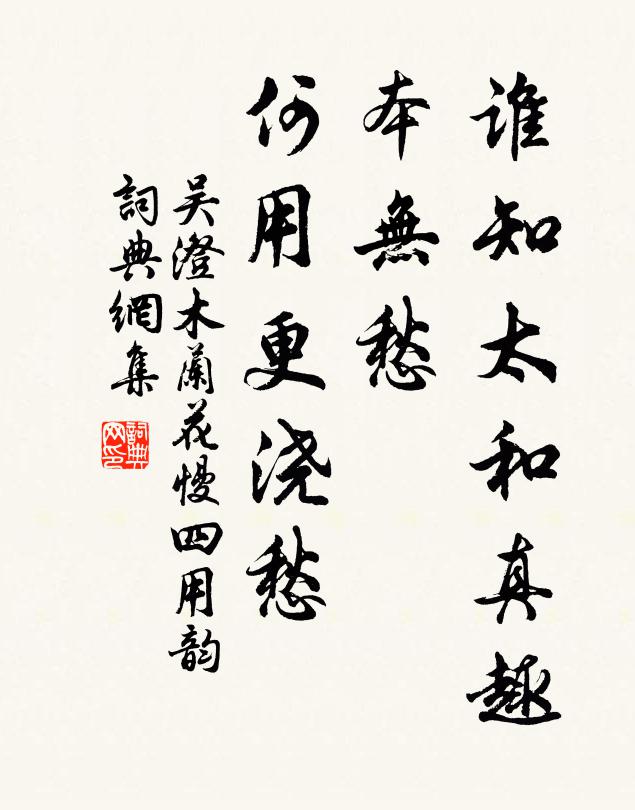 誰知太和真趣
本無愁
何用更浇愁
吴澄木蘭花慢四用韵
詞典網集
詞典
网印